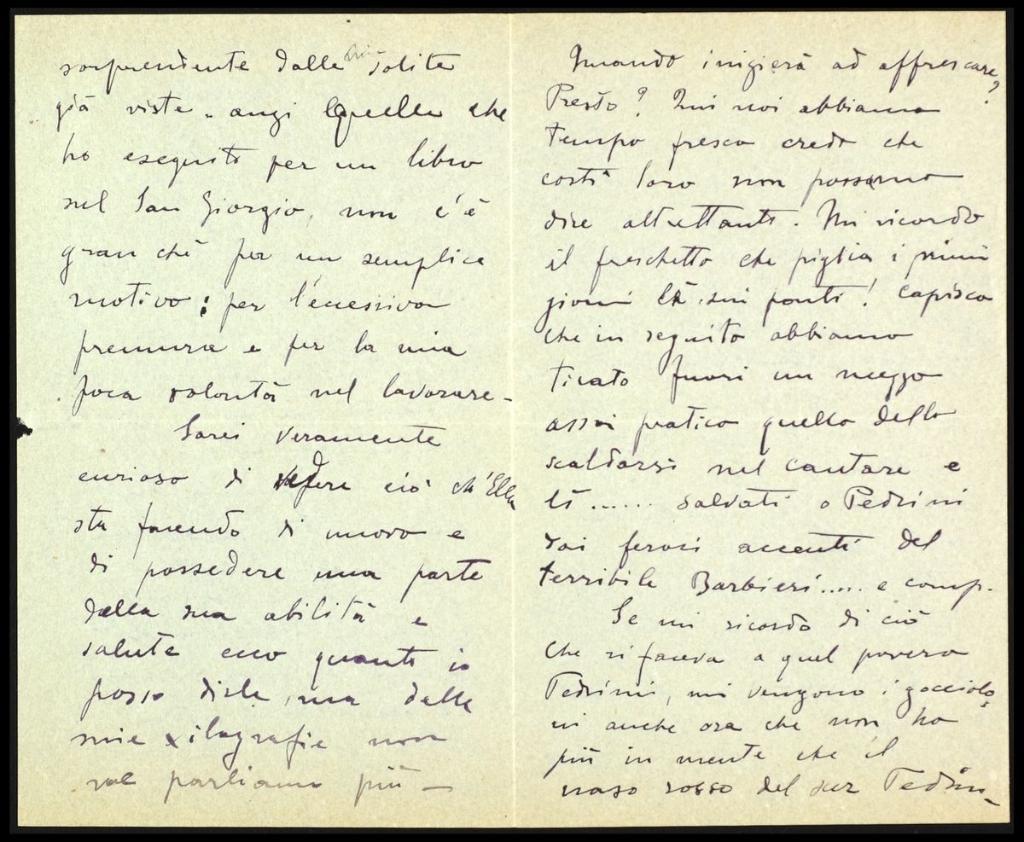 sorprendente dalle mie solite
già viste. anzi quelle che
ho eseguito per un libro
sul San Giorgio, non c'è
gran chè per un semplice
motivo: per l'eccessiva
premura e per la mia
poca volontà nel lavorare -
Sarei veramente
curioso di vedere ciò ch'Ella
sta facendo di nuovo e
di possedere una parte
della sua abilità e
salute ecco quanto io
posso dirle, ma delle
mie xilografie non
ne parliamo più -
Quando inizierà ad affrescare?
Presto? Qui noi abbiamo
tempo fresco credo che
costì loro non possano
dire altrettanto. Mi ricordo
il freschetto che piglia i primi
giorni là sui ponti! Capisco
che in seguito abbiamo
ticato fuori un mezzo
assai pratico quello dello
scaldarsi nel cantare e
lì...... salvati o Pedrini
dai feroci accenti del
terribile Barbieri..... e comp.
Se mi ricordo di ciò
che si faceva a quel povero
Pedrini, mi vengono i gocciolo,
ni anche ora che non ho
più in mente che il
naso rosso del sur Pedri-